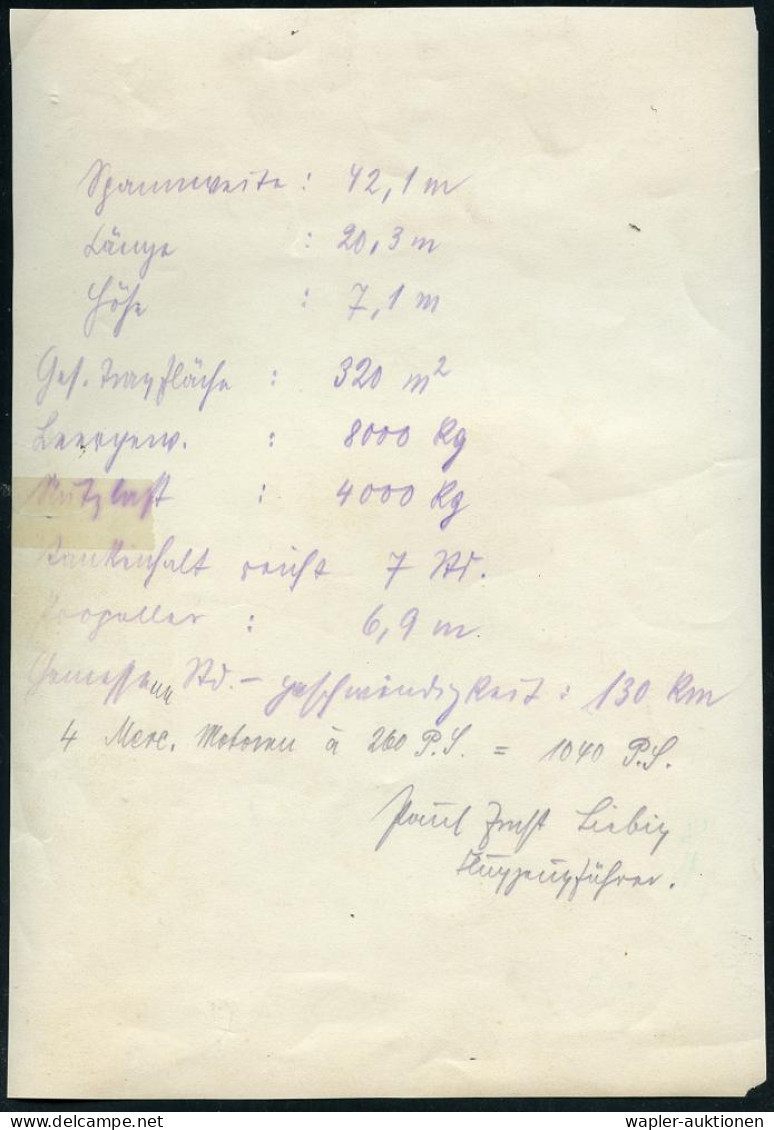 Spannweite : 42,1 m
Länge : 20,3 m
Höhe : 7,1 m
Ges. Tragfläche : 320 m²
Leergew. : 8000 Kg
Nutzlast : 4000 Kg
Tankinhalt reicht 7 Std.
Propeller : 6,9 m
Gemessene Std. – geschwindigkeit : 130 Km
4 Merc. Motoren à 260 P.S. = 1040 P.S.
Paul Ernst Liebig
Flugzeugführer.
wapler-auktionen